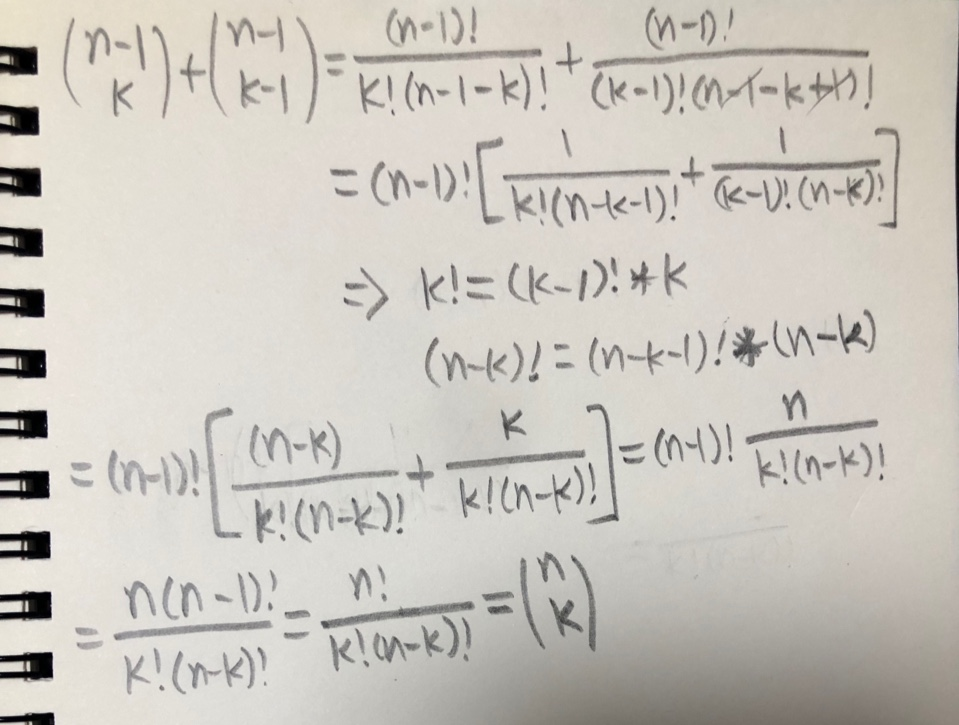 (n-1 k) + (n-1 k-1) = (n-1)! / k!(n-1-k)! + (n-1)! / (k-1)!(n-1-k+1)!
= (n-1)! [ 1 / k!(n-k-1)! + 1 / (k-1)!(n-k)! ]
=> k! = (k-1)! * k
(n-k)! = (n-k-1)! * (n-k)
= (n-1)! [ (n-k) / k!(n-k)! + k / k!(n-k)! ] = (n-1)! n / k!(n-k)!
= n(n-1)! / k!(n-k)! = n! / k!(n-k)! = (n k)